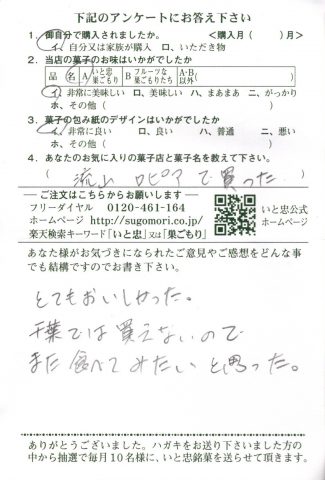 下記のアンケートにお答え下さい
1. 御自分で購入されましたか。 <購入月( )月>
イ. 自分又は家族が購入 ロ. いただき物
2. 当店の菓子のお味はいかがでしたか
品名 A いと忠 巣ごもり B フルーツな 巣ごもりたち A・B 以外( )
イ. 非常に美味しい ロ. 美味しい ハ. まあまあ ニ. がっかり
ホ. その他( )
3. 菓子の包み紙のデザインはいかがでしたか
イ. 非常に良い ロ. 良い ハ. 普通 ニ. 悪い
ホ. その他( )
4. あなたのお気に入りの菓子店と菓子名を教えて下さい。
( 流山 ロピアで買った )
ご注文はこちらからお願いします
フリーダイヤル 0120-461-164
ホームページ http://sugomori.co.jp/
楽天検索キーワード「いと忠」又は「巣ごもり」
いと忠公式
ホームページ
あなた様がお気づきになられたご意見やご感想をどんな事
でも結構ですのでお書き下さい。
とてもおいしかった。
千葉では買えないので
また食べてみたいと思った。
ありがとうございました。ハガキをお送り下さいました方の
中から抽選で毎月10名様に、いと忠銘菓を送らせて頂きます。